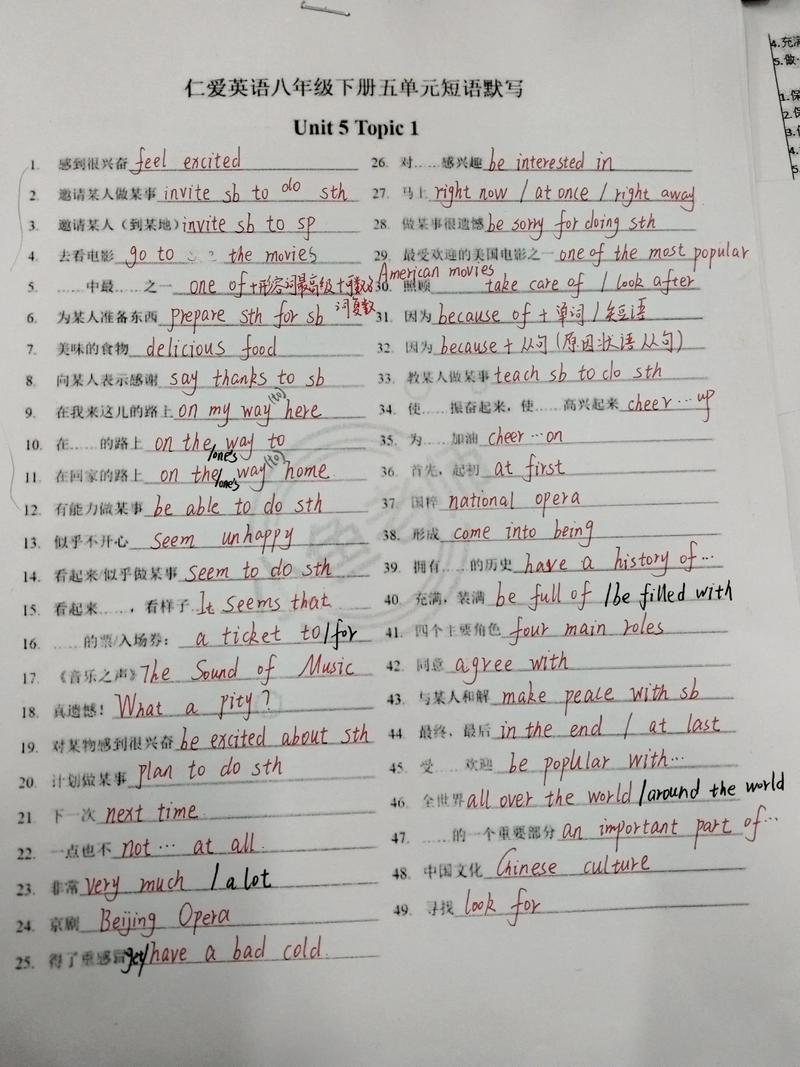 仁爱英语八年级下册五单元短语默写
Unit 5 Topic 1
1. 感到很兴奋 feel excited
2. 邀请某人做某事 invite sb to do sth
3. 邀请某人（到某地） invite sb to sp
4. 去看电影 go to the movies
5. ……中最……之一 one of +形容词最高级+可数名词复数
6. 为某人准备东西 prepare sth for sb
7. 美味的食物 delicious food
8. 向某人表示感谢 say thanks to sb
9. 在我来这儿的路上 on my way (to) here
10. 在……的路上 on the/one's way to
11. 在回家的路上 on the/one's way (to) home
12. 有能力做某事 be able to do sth
13. 似乎不开心 seem unhappy
14. 看起来/似乎做某事 seem to do sth
15. 看起来……，看样子 It seems that
16. ……的票/入场券： a ticket to/for
17. 《音乐之声》 The Sound of Music
18. 真遗憾！ What a pity?
19. 对某物感到很兴奋 be excited about sth
20. 计划做某事 plan to do sth
21. 下一次 next time
22. 一点也不 not… at all
23. 非常 very much / a lot
24. 京剧 Beijing Opera
25. 得了重感冒 get/have a bad cold
26. 对……感兴趣 be interested in
27. 马上 right now / at once / right away
28. 做某事很遗憾 be sorry for doing sth
29. 最受欢迎的美国电影之一 one of the most popular
American movies
30. 照顾 take care of / look after
31. 因为 because of + 单词/短语
32. 因为 because + 从句(原因状语从句)
33. 教某人做某事 teach sb to do sth
34. 使……振奋起来，使……高兴起来 cheer…up
35. 为……加油 cheer…on
36. 首先，起初 at first
37. 国粹 national opera
38. 形成 come into being
39. 拥有……的历史 have a history of…
40. 充满，装满 be full of / be filled with
41. 四个主要角色 four main roles
42. 同意 agree with
43. 与某人和解 make peace with sb
44. 最终，最后 in the end / at last
45. 受……欢迎 be poplular with…
46. 全世界 all over the world / around the world
47. ……的一个重要部分 an important part of…
48. 中国文化 Chinese culture
49. 寻找 look for
4.充满
5.做
1.保
2.保
4.
5.